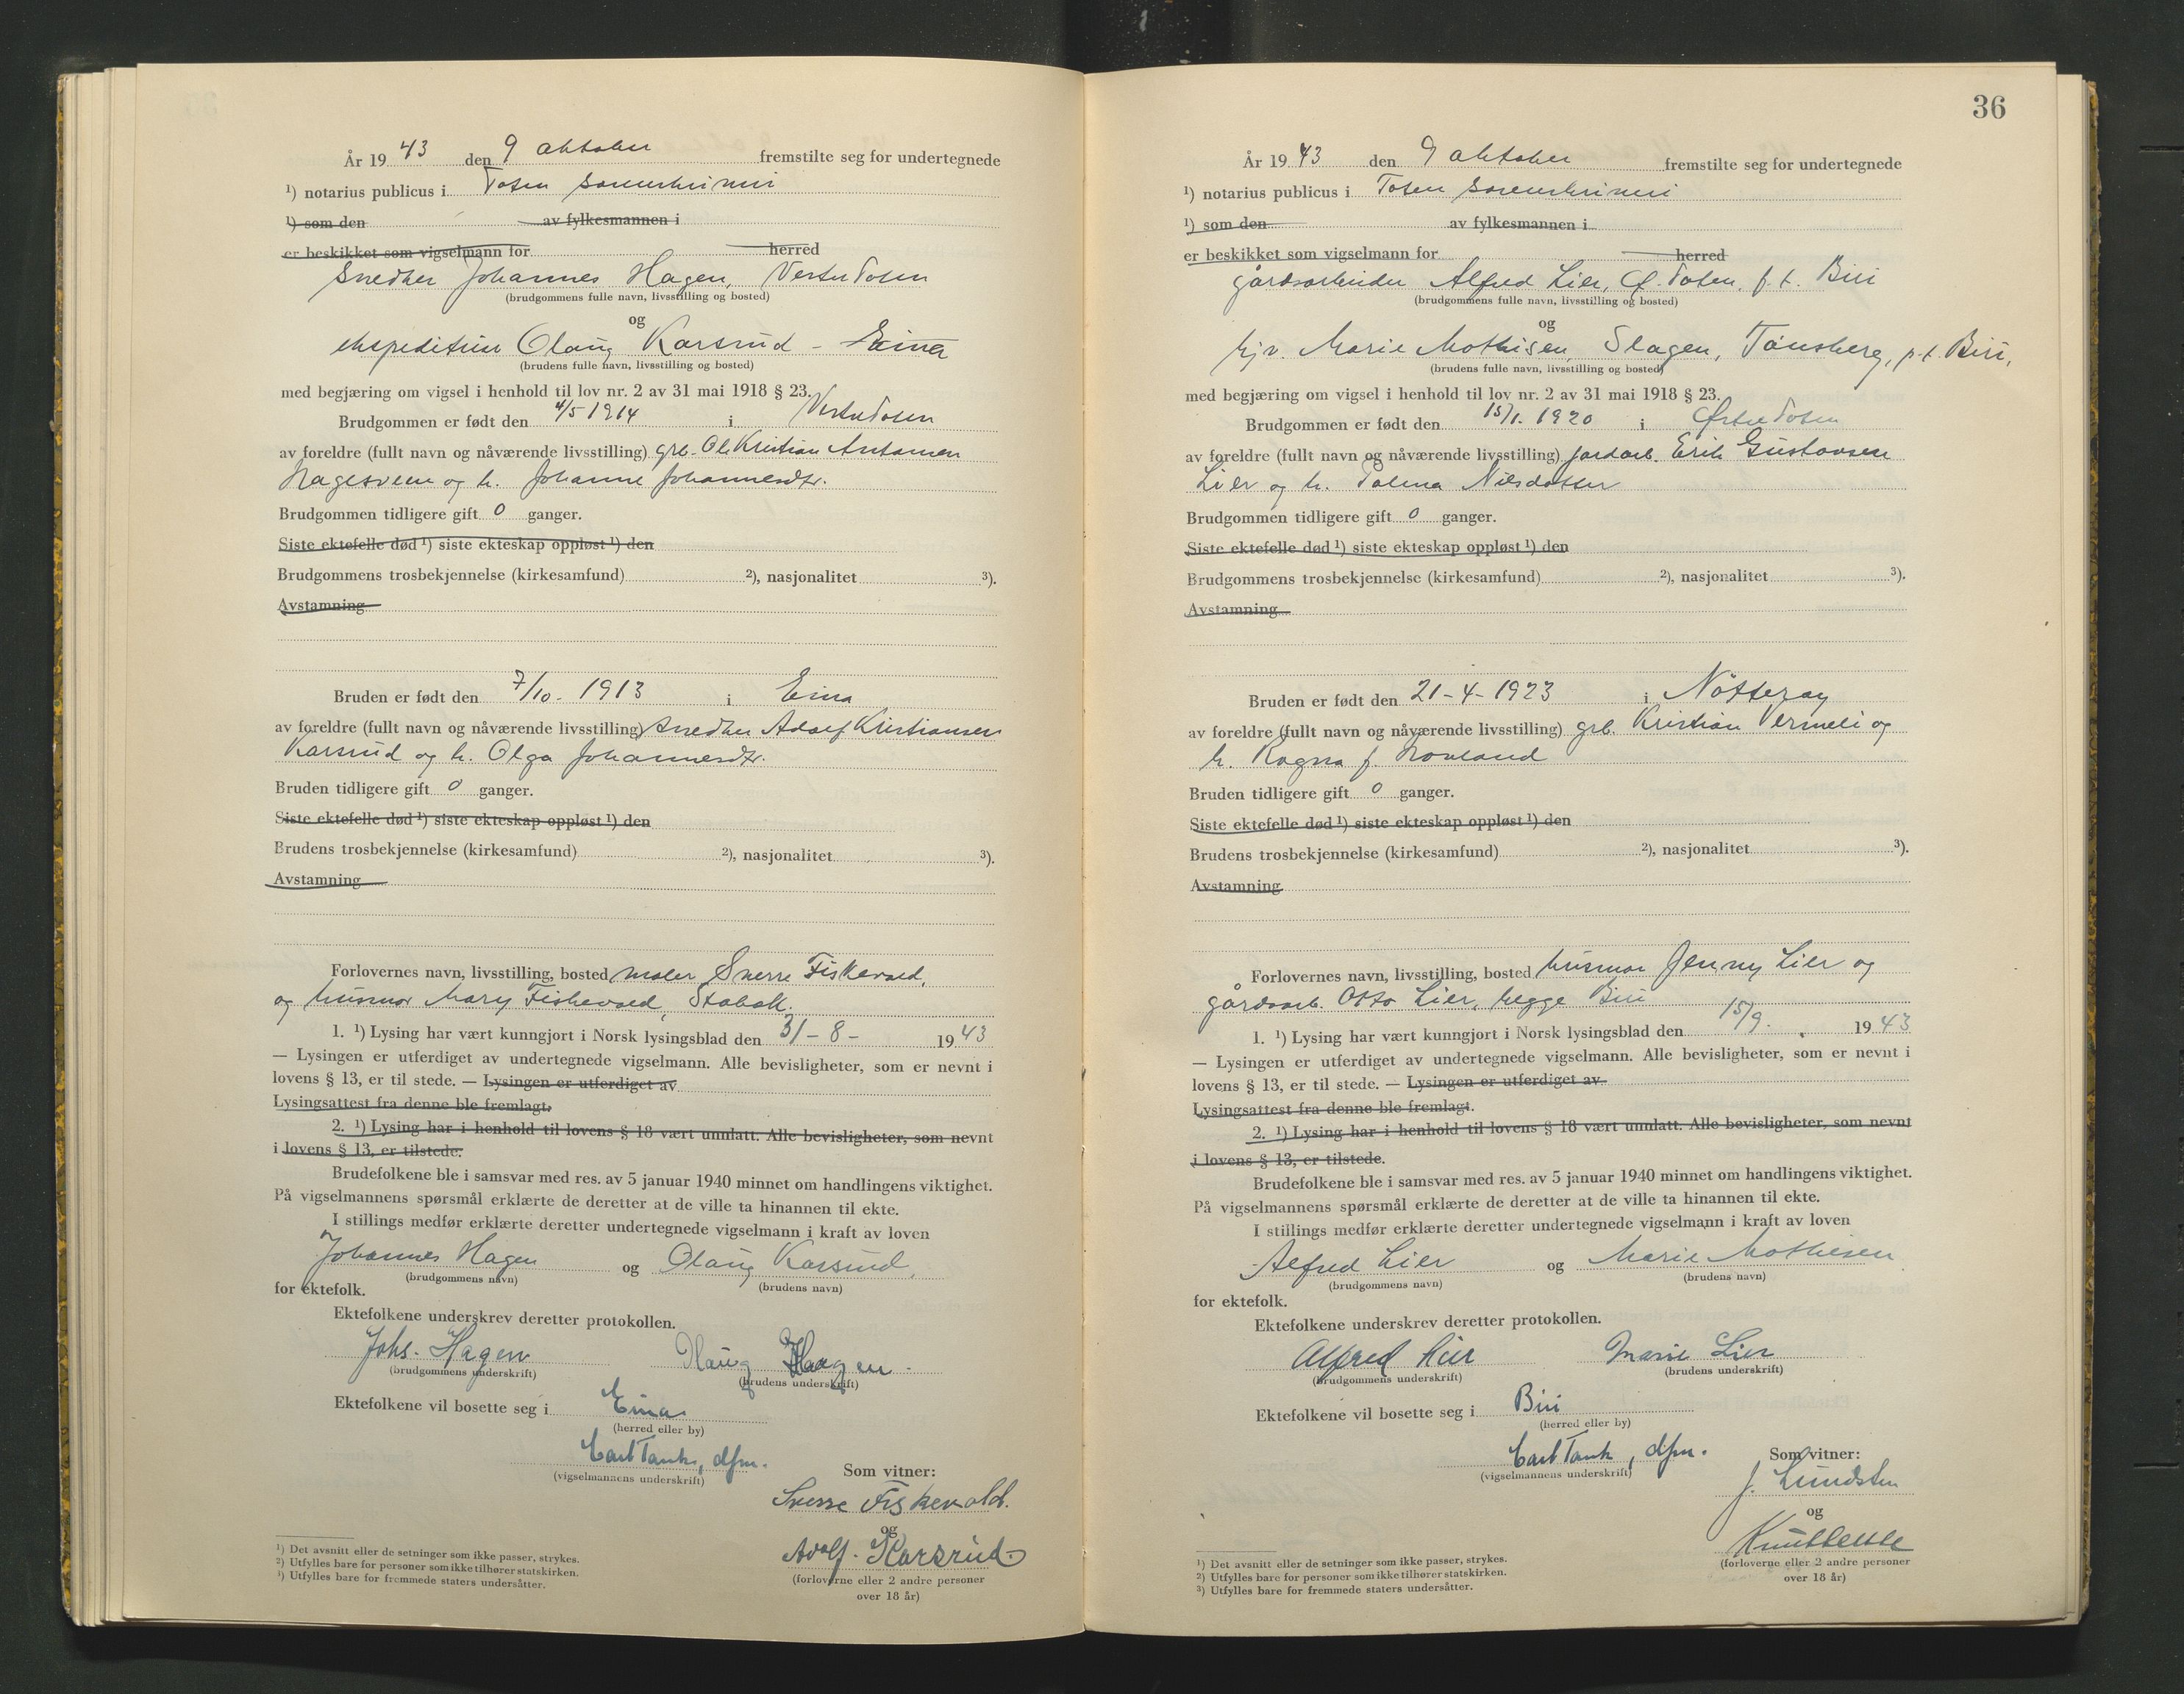 År 19 43 den 9 oktober fremstilte seg for undertegnede
¹) notarius publicus i Toten sorenskriveri
¹) som den av fylkesmannen i
er beskikket som vigselmann for herred
Snedker Johannes Hagen, Vestre Toten
(brudgommens fulle navn, livsstilling og bosted)
og
ekspeditrise Olaug Karsrud - Eina
(brudens fulle navn, livsstilling og bosted)
med begjæring om vigsel i henhold til lov nr. 2 av 31 mai 1918 § 23.
Brudgommen er født den 4/5 1914 i Vestre Toten
av foreldre (fullt navn og nåværende livsstilling) grb. Ole Kristian Antonsen
Hagesveen og h. Johanne Johannesdtr.
Brudgommen tidligere gift 0 ganger.
Siste ektefelle død ¹) siste ekteskap oppløst ¹) den
Brudgommens trosbekjennelse (kirkesamfund) ²), nasjonalitet ³).
Avstamning
Bruden er født den 7/10. 1913 i Eina
av foreldre (fullt navn og nåværende livsstilling) snedker Adolf Kristiansen
Karsrud og h. Olga Johannesdtr.
Bruden tidligere gift 0 ganger.
Siste ektefelle død ¹) siste ekteskap oppløst ¹) den
Brudens trosbekjennelse (kirkesamfund) ²), nasjonalitet ³).
Avstamning
Forlovernes navn, livsstilling, bosted maler Sverre Fiskevold,
og husmor Mary Fiskevold, Stabækk.
1. ¹) Lysing har vært kunngjort i Norsk lysingsblad den 31-8- 19 43
— Lysingen er utferdiget av undertegnede vigselmann. Alle bevisligheter, som er nevnt i
lovens § 13, er til stede. — Lysingen er utferdiget av
Lysingsattest fra denne ble fremlagt.
2. ¹) Lysing har i henhold til lovens § 18 vært unnlatt. Alle bevisligheter, som nevnt
i lovens § 13, er tilstede.
Brudefolkene ble i samsvar med res. av 5 januar 1940 minnet om handlingens viktighet.
På vigselmannens spørsmål erklærte de deretter at de ville ta hinannen til ekte.
I stillings medfør erklærte deretter undertegnede vigselmann i kraft av loven
Johannes Hagen og Olaug Karsrud.
(brudgommens navn) (brudens navn)
for ektefolk.
Ektefolkene underskrev deretter protokollen.
Johs. Hagen Olaug Hagen.
(brudgommens underskrift) (brudens underskrift)
Ektefolkene vil bosette seg i Eina
(herred eller by)
Carl Tank, dfm.
(vigselmannens underskrift)
Som vitner:
Sverre Fiskevold.
og
Adolf. Karsrud
(forloverne eller 2 andre personer
over 18 år)
¹) Det avsnitt eller de setninger som ikke passer, strykes.
²) Utfylles bare for personer som ikke tilhører statskirken.
³) Utfylles bare for fremmede staters undersåtter.
36
År 19 43 den 9 oktober fremstilte seg for undertegnede
¹) notarius publicus i Toten sorenskriveri
¹) som den av fylkesmannen i
er beskikket som vigselmann for herred
gårdsarbeider Alfred Lier, Ø. Toten, p.t. Biri
(brudgommens fulle navn, livsstilling og bosted)
og
hjv. Marie Mathisen, Slagen, Tønsberg, p.t. Biri,
(brudens fulle navn, livsstilling og bosted)
med begjæring om vigsel i henhold til lov nr. 2 av 31 mai 1918 § 23.
Brudgommen er født den 15/1. 1920 i Østre Toten
av foreldre (fullt navn og nåværende livsstilling) jordarb. Erik Gustavsen
Lier og h. Tolina Nilsdatter
Brudgommen tidligere gift 0 ganger.
Siste ektefelle død ¹) siste ekteskap oppløst ¹) den
Brudgommens trosbekjennelse (kirkesamfund) ²), nasjonalitet ³).
Avstamning
Bruden er født den 21-4-1923 i Nøtterøy
av foreldre (fullt navn og nåværende livsstilling) grb. Kristian Vermeli og
h. Ragna f.
Bruden tidligere gift 0 ganger.
Siste ektefelle død ¹) siste ekteskap oppløst ¹) den
Brudens trosbekjennelse (kirkesamfund) ²), nasjonalitet ³).
Avstamning
Forlovernes navn, livsstilling, bosted husmor Jenny Lier og
gårdsarb. Otto Lier, begge Biri
1. ¹) Lysing har vært kunngjort i Norsk lysingsblad den 15/9. 19 43
— Lysingen er utferdiget av undertegnede vigselmann. Alle bevisligheter, som er nevnt i
lovens § 13, er til stede. — Lysingen er utferdiget av
Lysingsattest fra denne ble fremlagt.
2. ¹) Lysing har i henhold til lovens § 18 vært unnlatt. Alle bevisligheter, som nevnt
i lovens § 13, er tilstede.
Brudefolkene ble i samsvar med res. av 5 januar 1940 minnet om handlingens viktighet.
På vigselmannens spørsmål erklærte de deretter at de ville ta hinannen til ekte.
I stillings medfør erklærte deretter undertegnede vigselmann i kraft av loven
Alfred Lier og Marie Mathisen
(brudgommens navn) (brudens navn)
for ektefolk.
Ektefolkene underskrev deretter protokollen.
Alfred Lier Marie Lier
(brudgommens underskrift) (brudens underskrift)
Ektefolkene vil bosette seg i Biri
(herred eller by)
Carl Tank, dfm.
(vigselmannens underskrift)
Som vitner:
J. Lundsten
og
(forloverne eller 2 andre personer
over 18 år)
¹) Det avsnitt eller de setninger som ikke passer, strykes.
²) Utfylles bare for personer som ikke tilhører statskirken.
³) Utfylles bare for fremmede staters undersåtter.